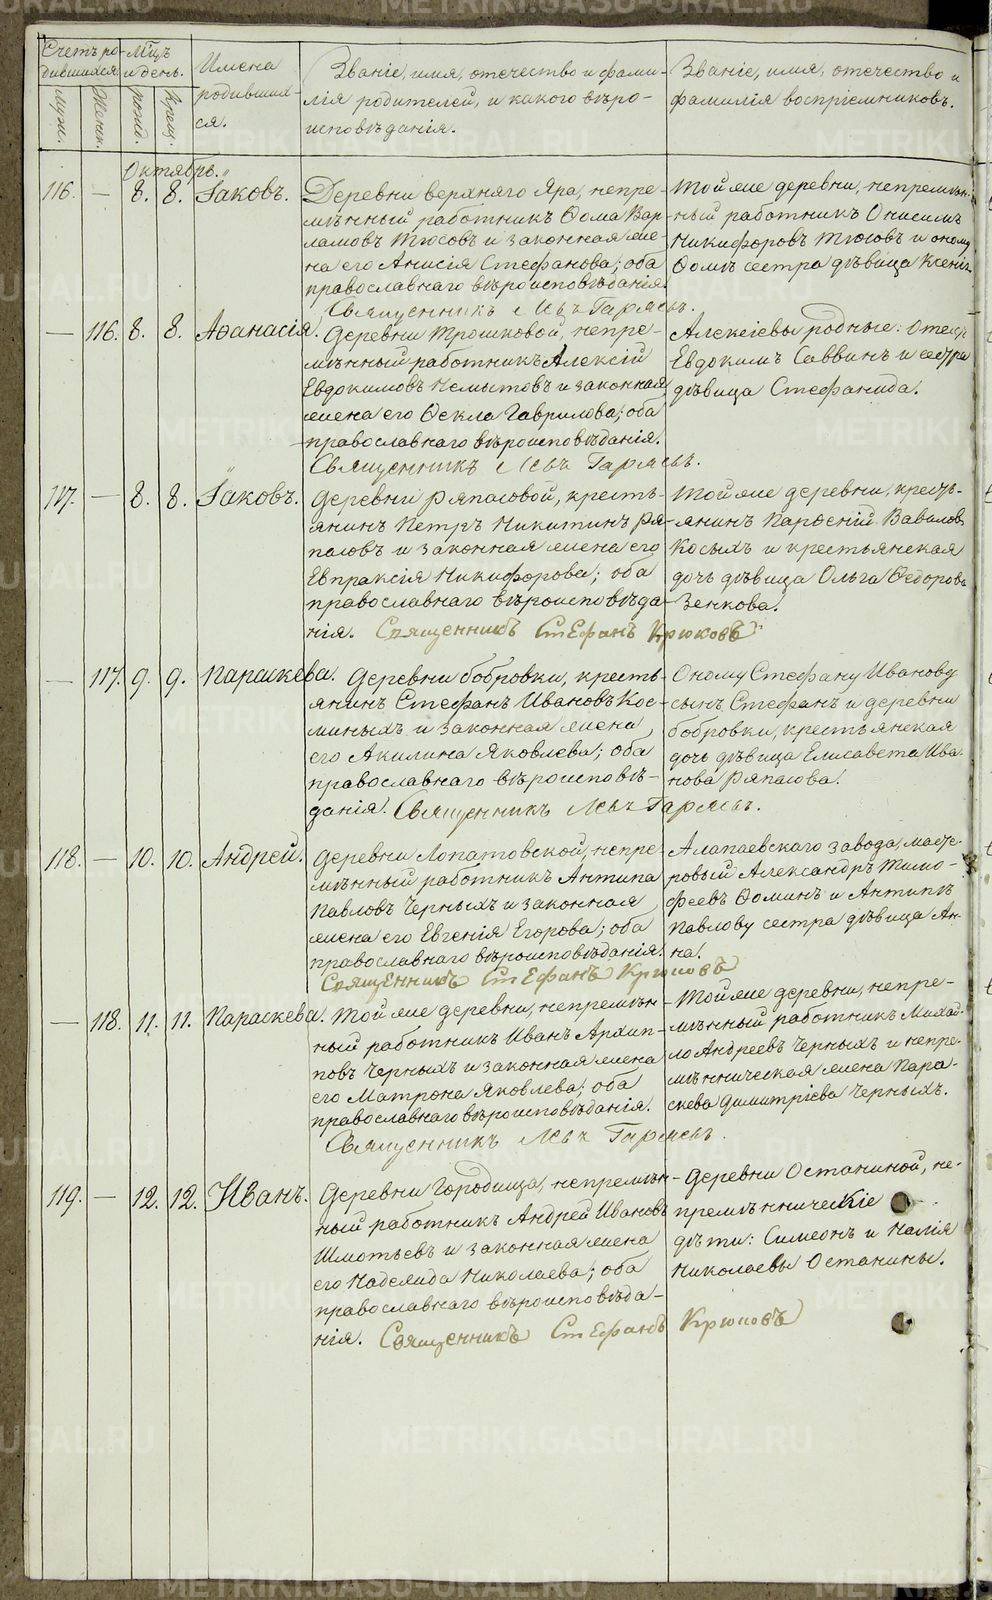 Счетъ ро-
дившихся.
Мѣц.
и день.
Имена
родивших-
ся.
Званіе, имя, отечество и фами-
лія родителей, и какого вѣро-
исповѣданія.
Званіе, имя, отечество и
фамилія воспріемниковъ.
муж.
женск.
рожд.
крещ.
Октябрь.
116. — 8. 8. Іаковъ.
Деревни верхняго Яра, непре-
мѣнный работникъ Ѳома Вар-
ламовъ Тюсовъ и законная же-
на его Анисія Стефанова; оба
православнаго вѣроисповѣданія.
Священникъ Левъ Гаряевъ.
Той же деревни, непремѣн-
ный работникъ Онисимъ
Никифоровъ Тюсовъ и оному
Ѳомѣ сестра дѣвица Ксенія.
— 116. 8. 8. Аѳанасія.
Деревни Трошковой, непре-
мѣнный работникъ Алексій
Евдокимовъ Немытовъ и законная
жена его Ѳекла Гаврилова; оба
православнаго вѣроисповѣданія.
Священникъ Левъ Гаряевъ.
Алексіевы родные: отецъ
Евдокимъ Саввинъ и сестра
дѣвица Стефанида.
117. — 8. 8. Іаковъ.
Деревни Ряпасовой, кресть-
янинъ Петръ Никитинъ Ря-
пасовъ и законная жена его
Евпраксія Никифорова; оба
православнаго вѣроисповѣда-
нія. Священникъ Стефанъ Крюковъ
Той же деревни, кресть-
янинъ Парѳеній Вавиловъ
Косыхъ и крестьянская
дочь дѣвица Ольга Ѳедорова
Зенкова.
— 117. 9. 9. Параскева.
Деревни бобровки, кресть-
янинъ Стефанъ Ивановъ Кос-
миныхъ и законная жена
его Акилина Яковлева; оба
православнаго вѣроисповѣ-
данія. Священникъ Левъ Гаряевъ.
Оному Стефану Иванову
сынъ Стефанъ и деревни
бобровки, крестьянская
дочь дѣвица Елисавета Ива-
нова Ряпасова.
118. — 10. 10. Андрей.
Деревни Лопатовской, непре-
мѣнный работникъ Антипа
Павловъ Черныхъ и законная
жена его Евгенія Егорова; оба
православнаго вѣроисповѣданія.
Священникъ Стефанъ Крюковъ
Алапаевскаго завода, масте-
ровый Александръ Тимо-
феевъ Ѳоминъ и Антипѣ
Павлову сестра дѣвица Ан-
на.
— 118. 11. 11. Параскева.
Той же деревни, непремѣн-
ный работникъ Иванъ Архип-
повъ Черныхъ и законная жена
его Матрона Яковлева; оба
православнаго вѣроисповѣданія.
Священникъ Левъ Гаряевъ.
Той же деревни, непре-
мѣнный работникъ Михай-
ло Андреевъ Черныхъ и непре-
мѣнническая жена Пара-
скева Димитріева Черныхъ.
119. — 12. 12. Иванъ.
Деревни Городища, непремѣн-
ный работникъ Андрей Ивановъ
Шмотьевъ и законная жена
его Надежда Николаева; оба
православнаго вѣроисповѣда-
нія. Священникъ Стефанъ Крюковъ
Деревни Останиной, не-
премѣнническіе
дѣти: Симеонъ и
Николаевы Останины.
METRIKI.GASO-URAL.RU